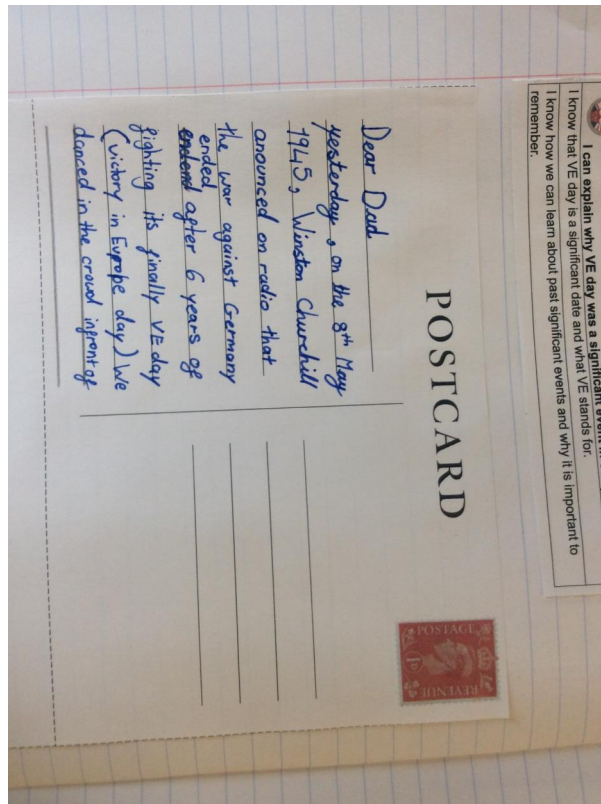 I can explain why VE day was a significant event
I know that VE day is a significant date and what VE stands for.
I know how we can learn about past significant events and why it is important to
remember.
POSTCARD
POSTAGE
1D
REVENUE
Dear Dad
yesterday, on the 8th May
1945, Winston Churchill
anounced on radio that
the war against Germany
ended
after 6 years of
fighting its finally VE day
(victory in Europe day) We
danced in the crowd infront of